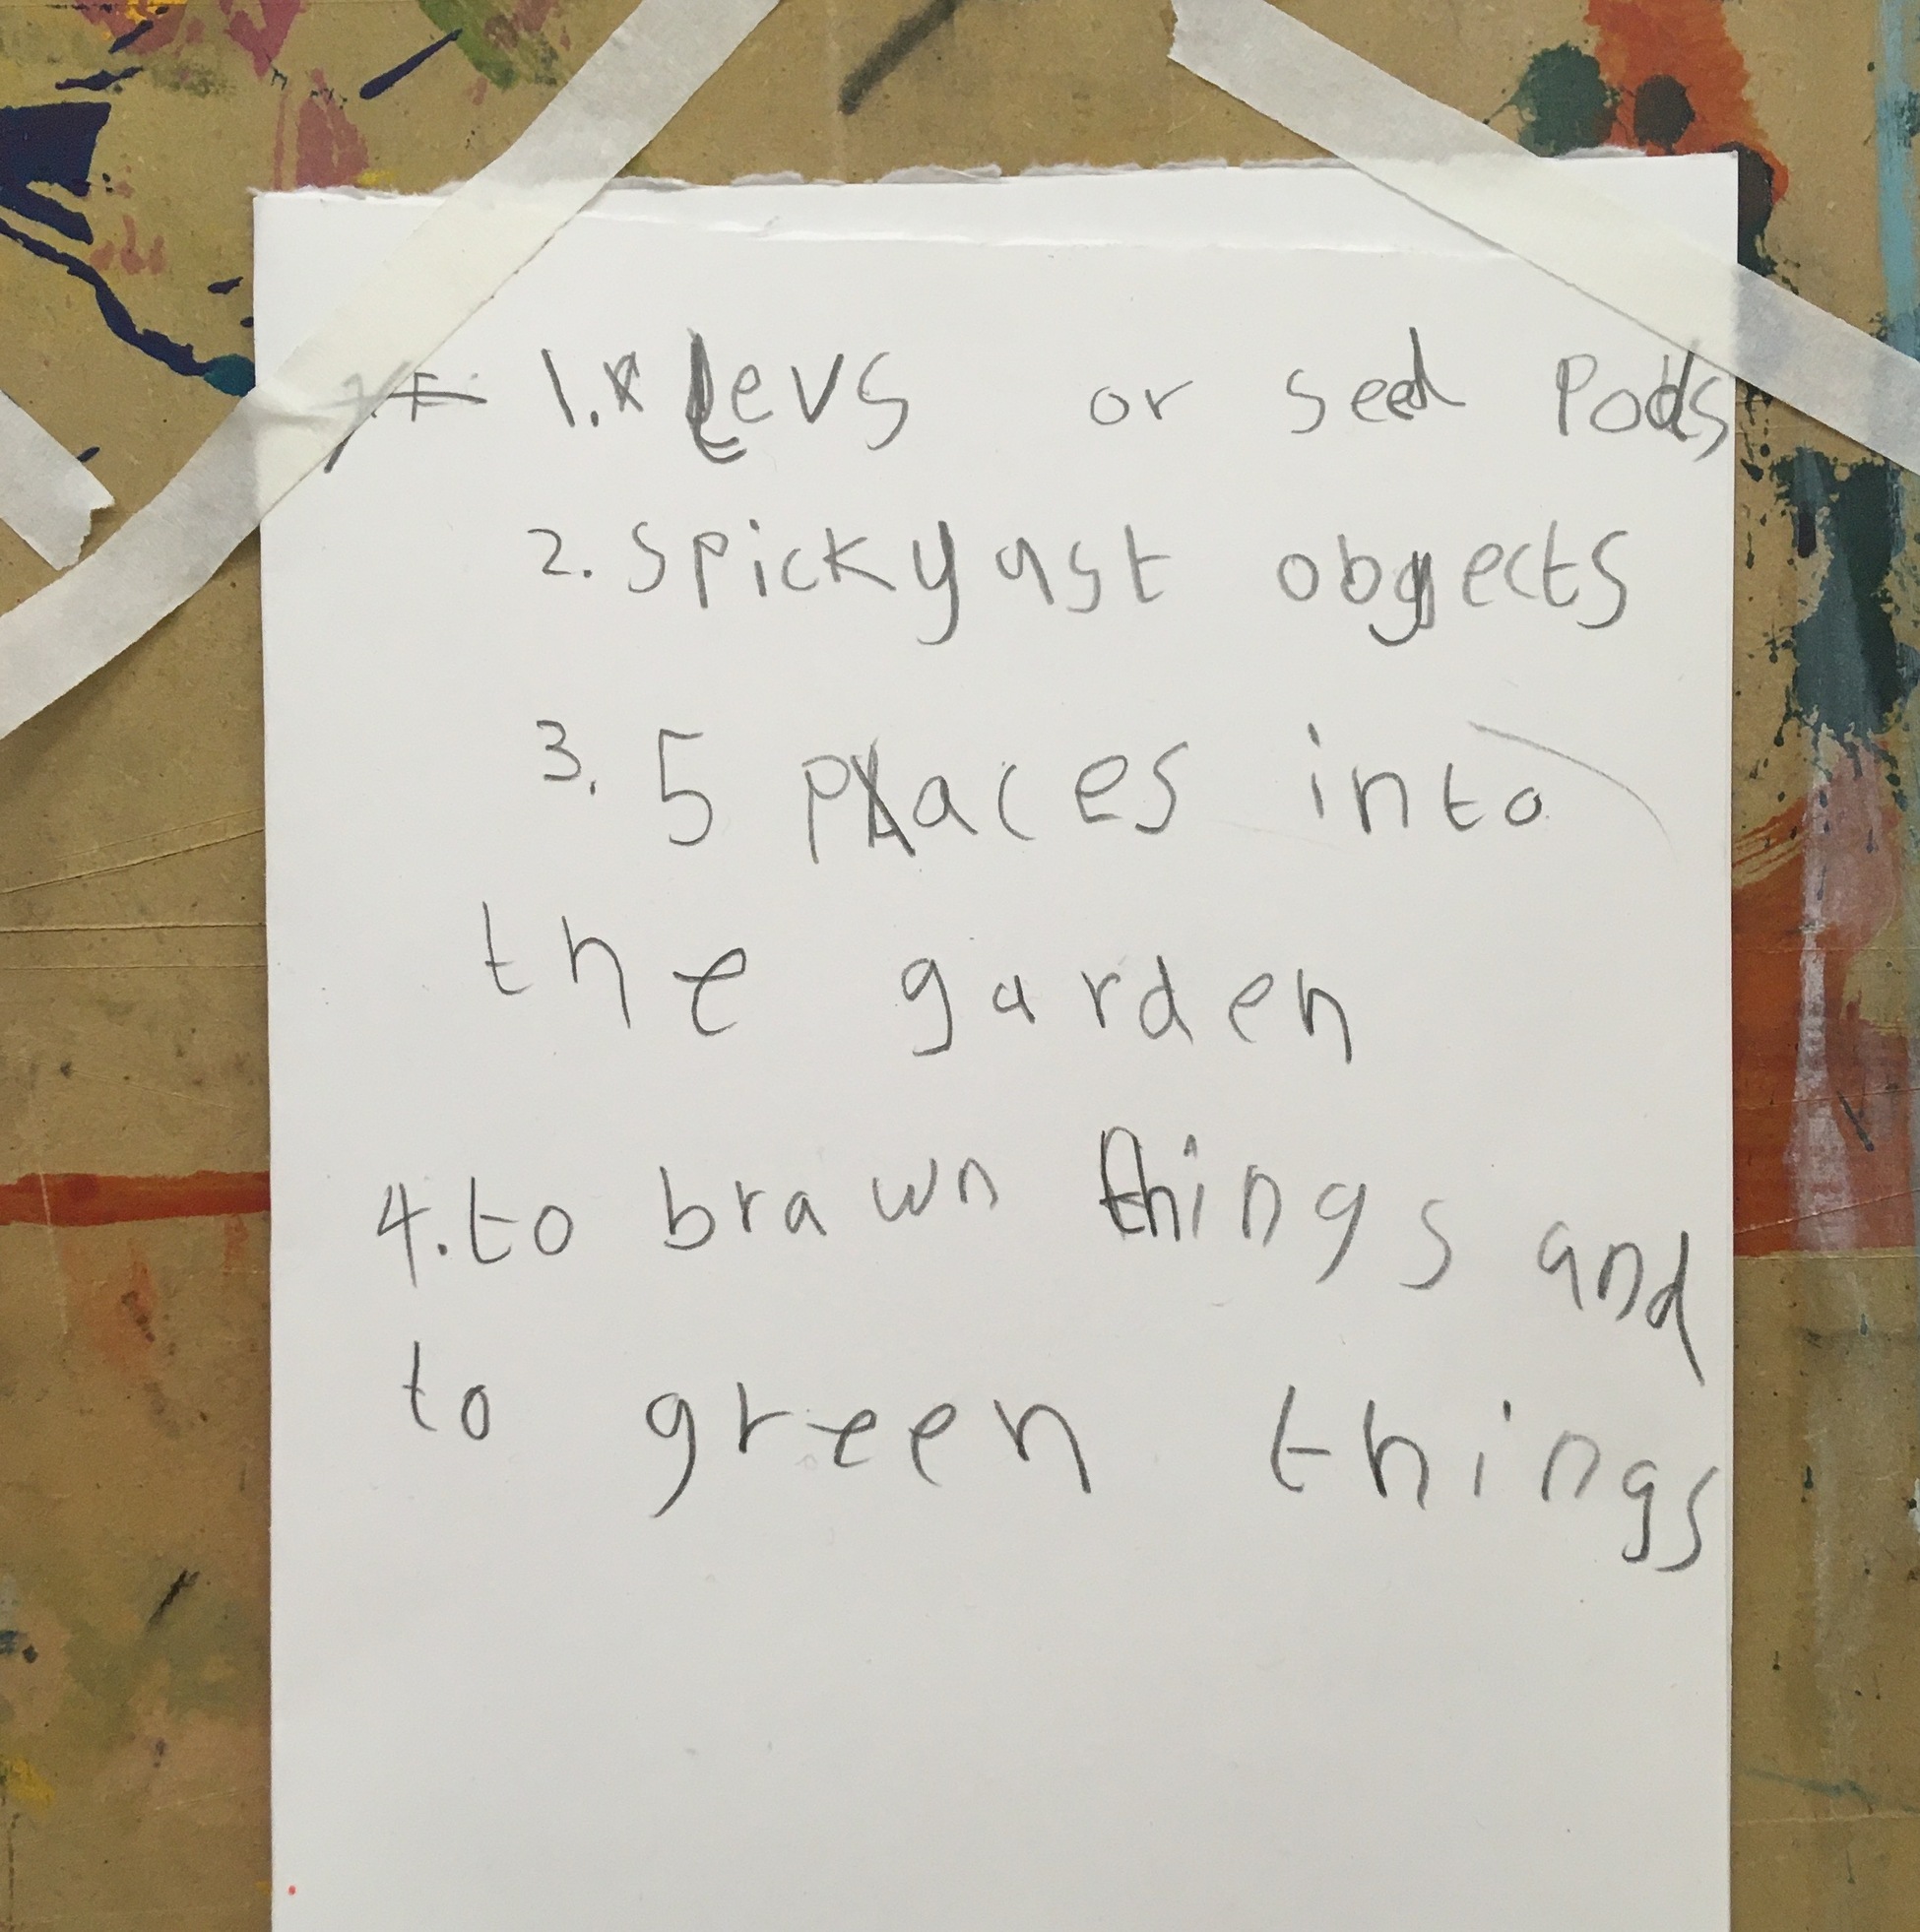 1. Levs or seed Pods
2. spickyast objects
3. 5 places into
the garden
4. to brawn things and
to green things